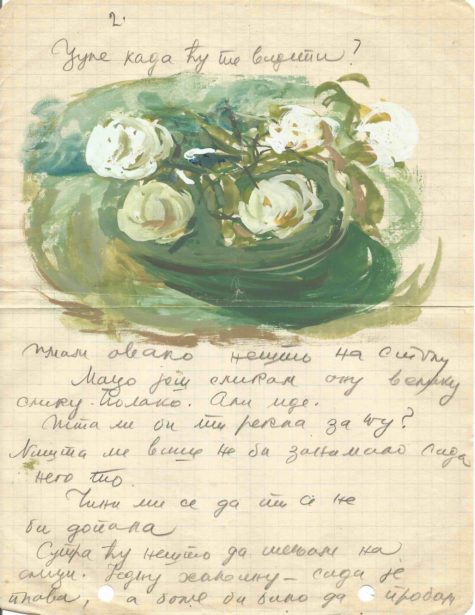 2.
Цуне када ћу те видети?
имам овако нешто на столу
Мацо још сликам ону велику
слику. Полако. Али иде.
Шта ли би ти рекла за њу?
Ништа ме више не би занимало сада
него то.
Чини ми се да ти се не
би допала
Сутра ћу нешто да мењам на
слици. Једну хаљину – сада је
плава, а боље би било да пробам